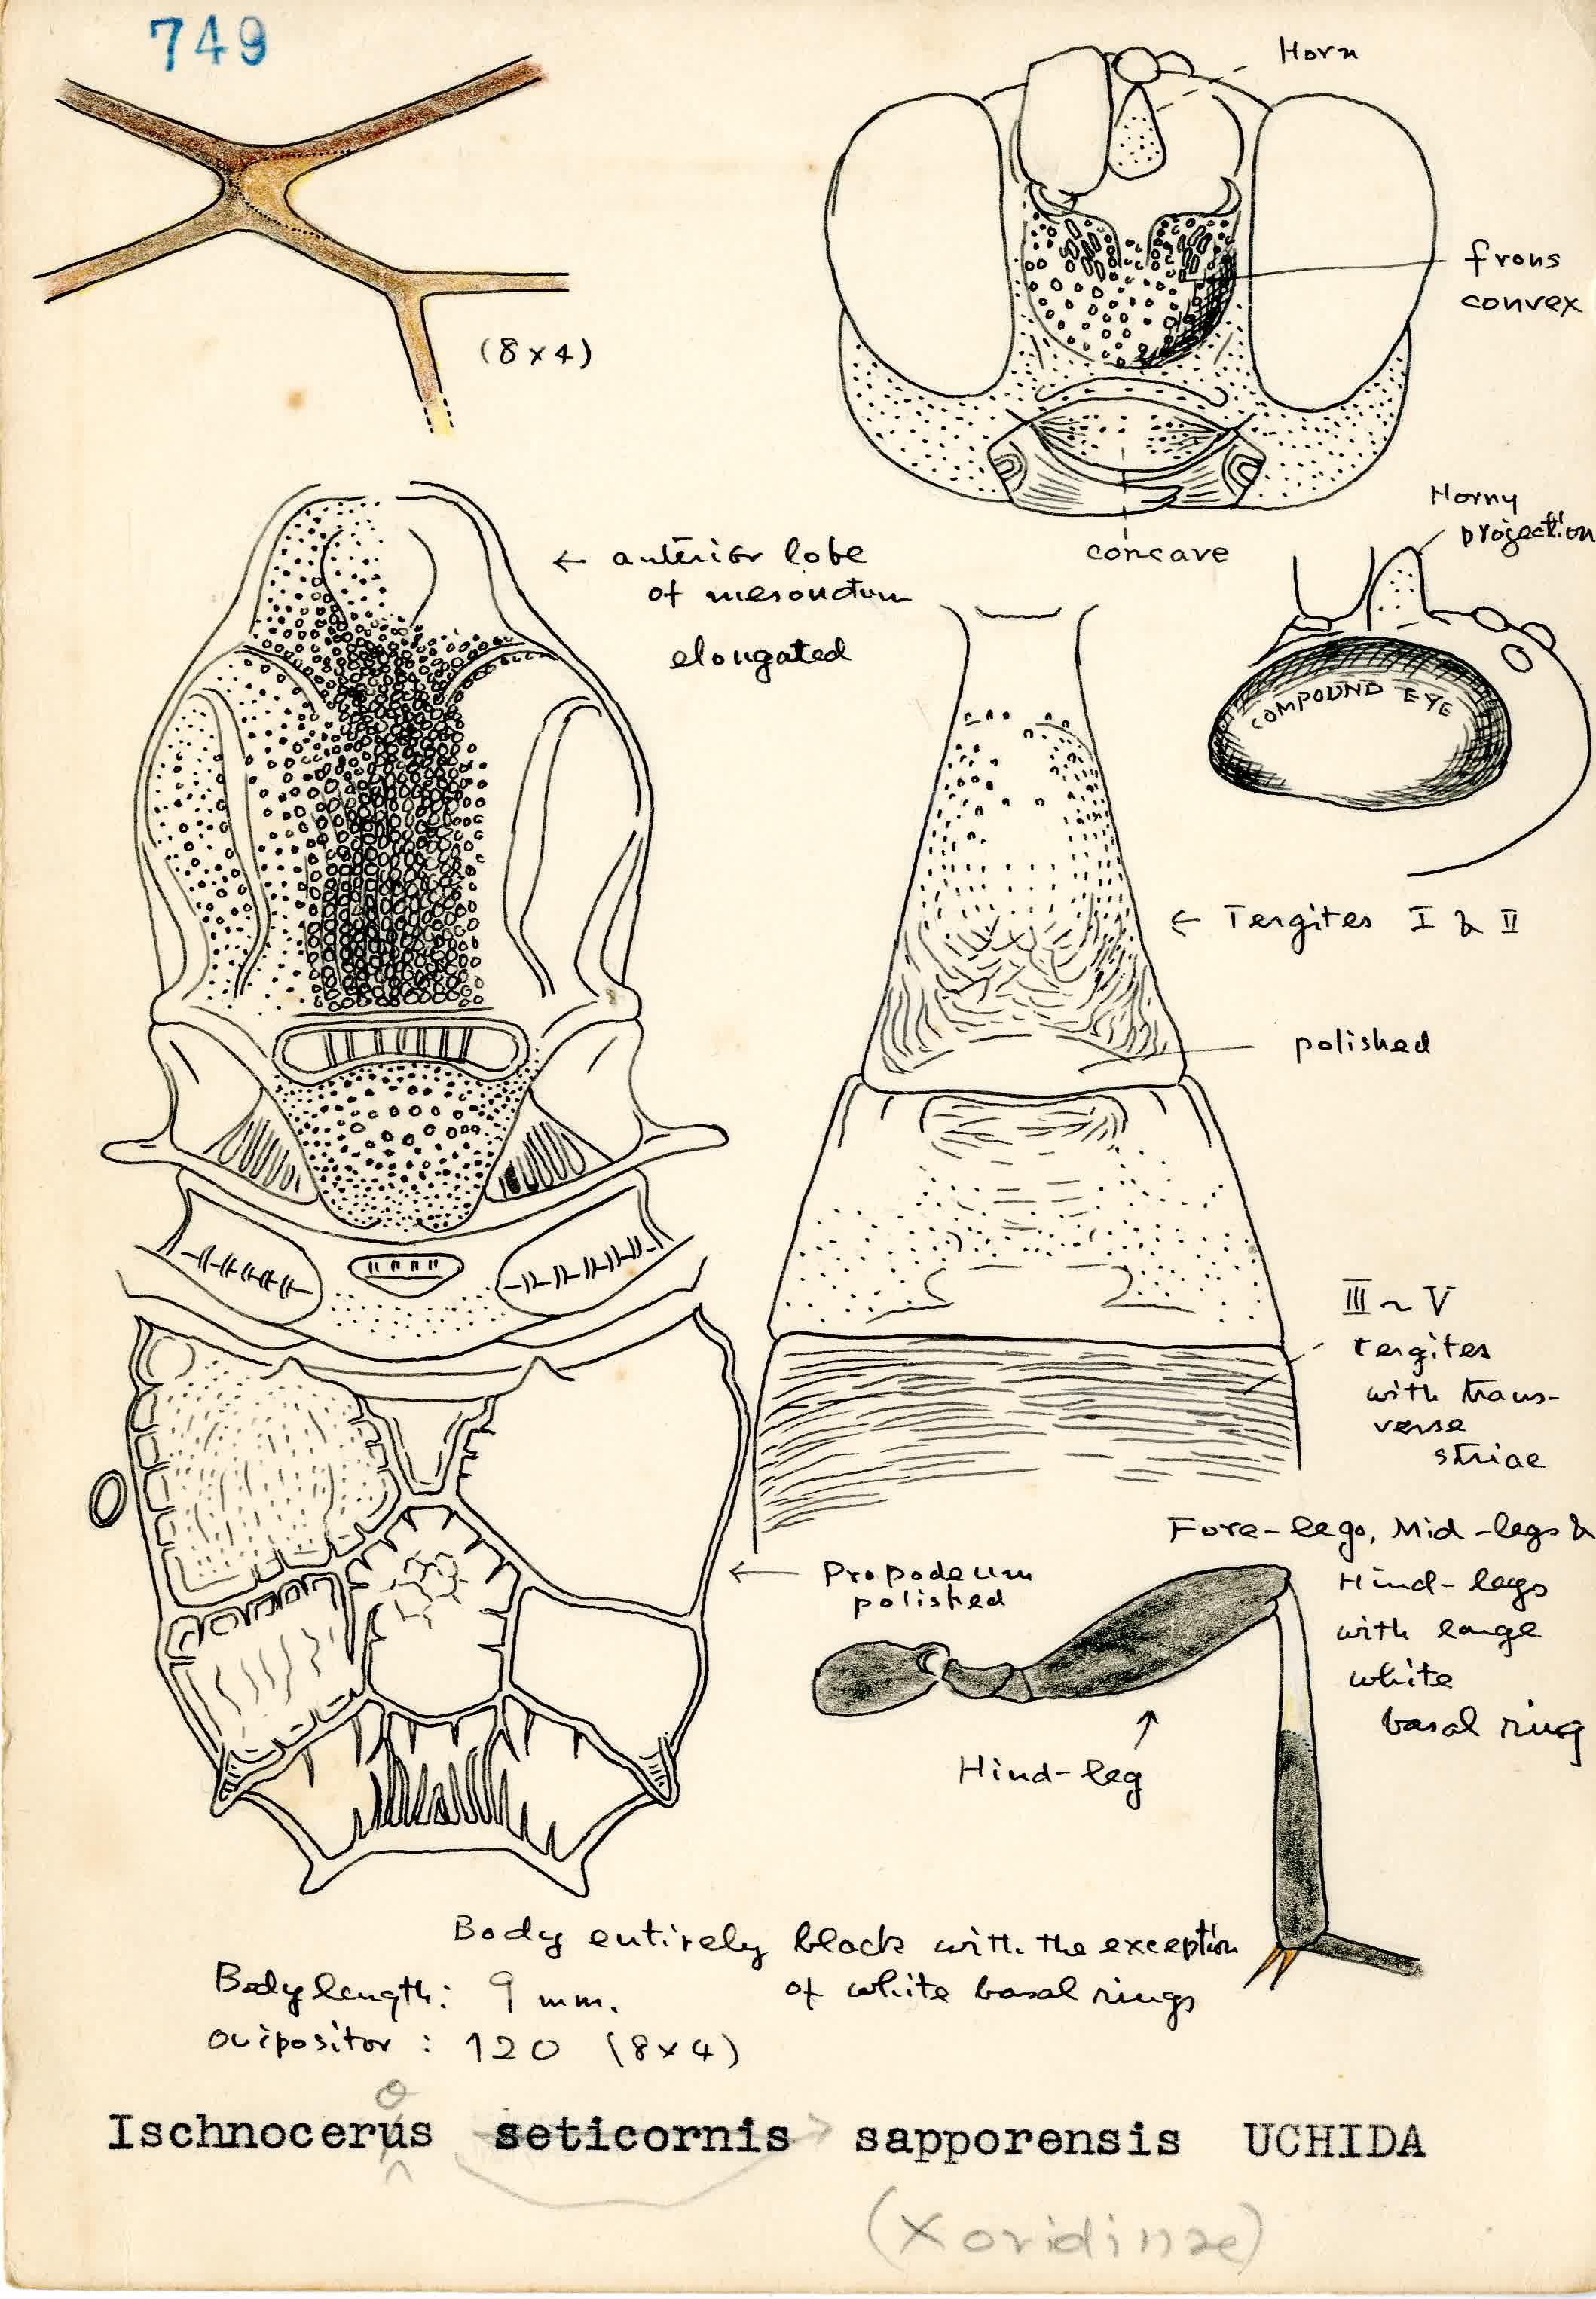 749
Horn
(8x4)
frons
convex
concave
Horny
projection
← anterior lobe
of mesonotum
elongated
COMPOUND EYE
← Tergites I & II
polished
III ~ V
tergites
with trans-
verse
striae
← Propodeum
polished
Fore-legs, Mid-legs &
Hind-legs
with large
white
basal ring
Hind-leg
Body entirely black with the exception
of white basal rings
Body length: 9 mm.
ovipositor : 120 (8x4)
o
Ischnocerus seticornis sapporensis UCHIDA
(Xoridinae)